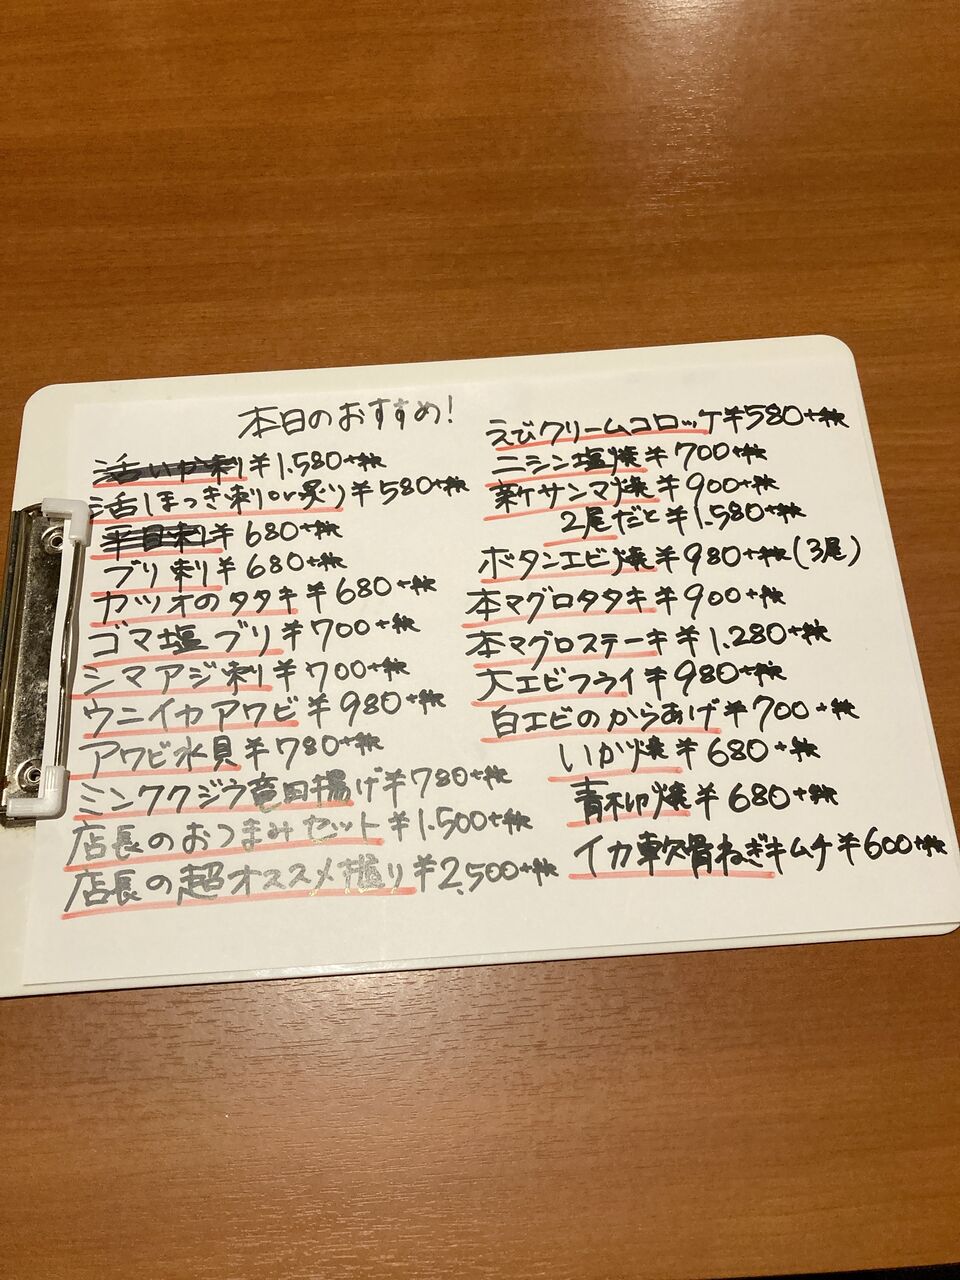 本日のおすすめ!
活いか刺 ¥1.580+税
活ほっき刺or炙り ¥580+税
平目刺 ¥680+税
ブリ刺 ¥680+税
カツオのタタキ ¥680+税
ゴマ塩ブリ ¥700+税
シマアジ刺 ¥700+税
ウニイカアワビ ¥980+税
アワビ水貝 ¥780+税
ミンククジラ竜田揚げ ¥780+税
店長のおつまみセット ¥1.500+税
店長の超オススメ盛り ¥2,500+税
えびクリームコロッケ ¥580+税
ニシン塩焼 ¥700+税
新サンマ焼 ¥900+税
2尾だと ¥1.580+税
ボタンエビ焼 ¥980+税(3尾)
本マグロタタキ ¥900+税
本マグロステーキ ¥1.280+税
大エビフライ ¥980+税
白エビのからあげ ¥700+税
いか焼 ¥680+税
青柳焼 ¥680+税
イカ軟骨ねぎキムチ ¥600+税